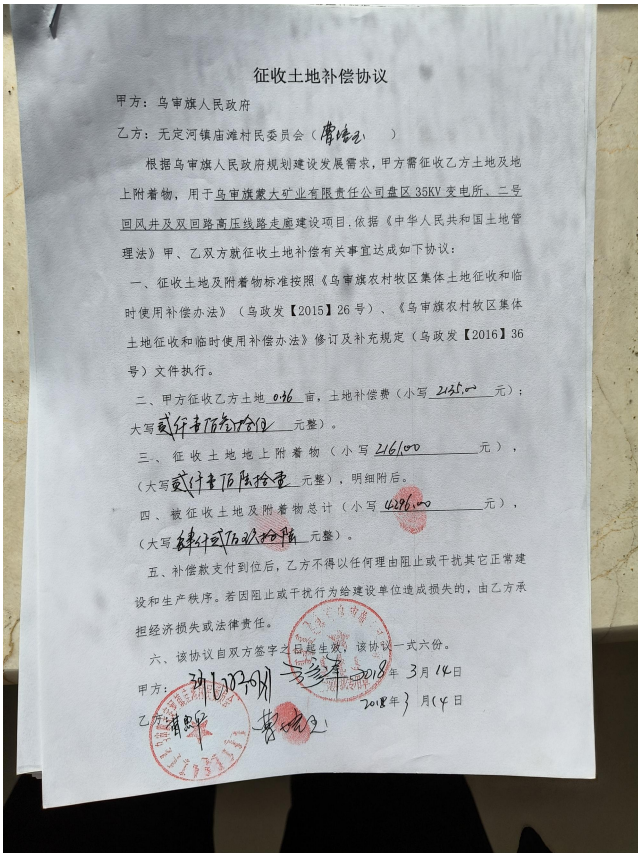 征收土地补偿协议
甲方：乌审旗人民政府
乙方：无定河镇庙滩村民委员会（曹培玉）
根据乌审旗人民政府规划建设发展需求，甲方需征收乙方土地及地
上附着物，用于乌审旗蒙大矿业有限责任公司盘区35KV变电所、二号
回风井及双回路高压线路走廊建设项目.依据《中华人民共和国土地管
理法》甲、乙双方就征收土地补偿有关事宜达成如下协议：
一、征收土地及附着物标准按照《乌审旗农村牧区集体土地征收和临
时使用补偿办法》（乌政发【2015】26号）、《乌审旗农村牧区集体
土地征收和临时使用补偿办法》修订及补充规定（乌政发【2016】36
号）文件执行。
二、甲方征收乙方土地 0.36 亩，土地补偿费（小写 2135.00 元）；
大写贰仟壹佰叁拾伍 元整）。
三、征收土地地上附着物（小写 2161.00 元），
（大写贰仟壹佰陆拾壹 元整），明细附后。
四、被征收土地及附着物总计（小写 4296.00 元），
（大写肆仟贰佰玖拾陆 元整）。
五、补偿款支付到位后，乙方不得以任何理由阻止或干扰其它正常建
设和生产秩序。若因阻止或干扰行为给建设单位造成损失的，由乙方承
担经济损失或法律责任。
六、该协议自双方签字之日起生效，该协议一式六份。
甲方： 2018年 3月 14日
乙方： 曹培玉 2018年3月14日